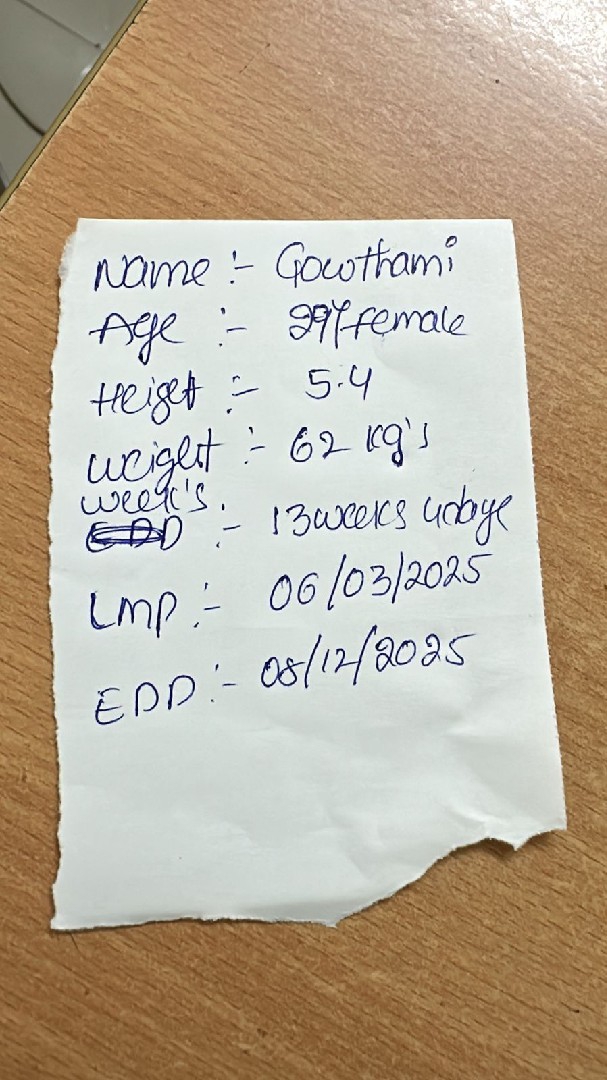 Name :- Gowthami
Age :- 29Y female
Height :- 5.4
weight :- 62 kg's
week's :- 13weeks 4days
Lmp :- 06/03/2025
EDD :- 08/12/2025